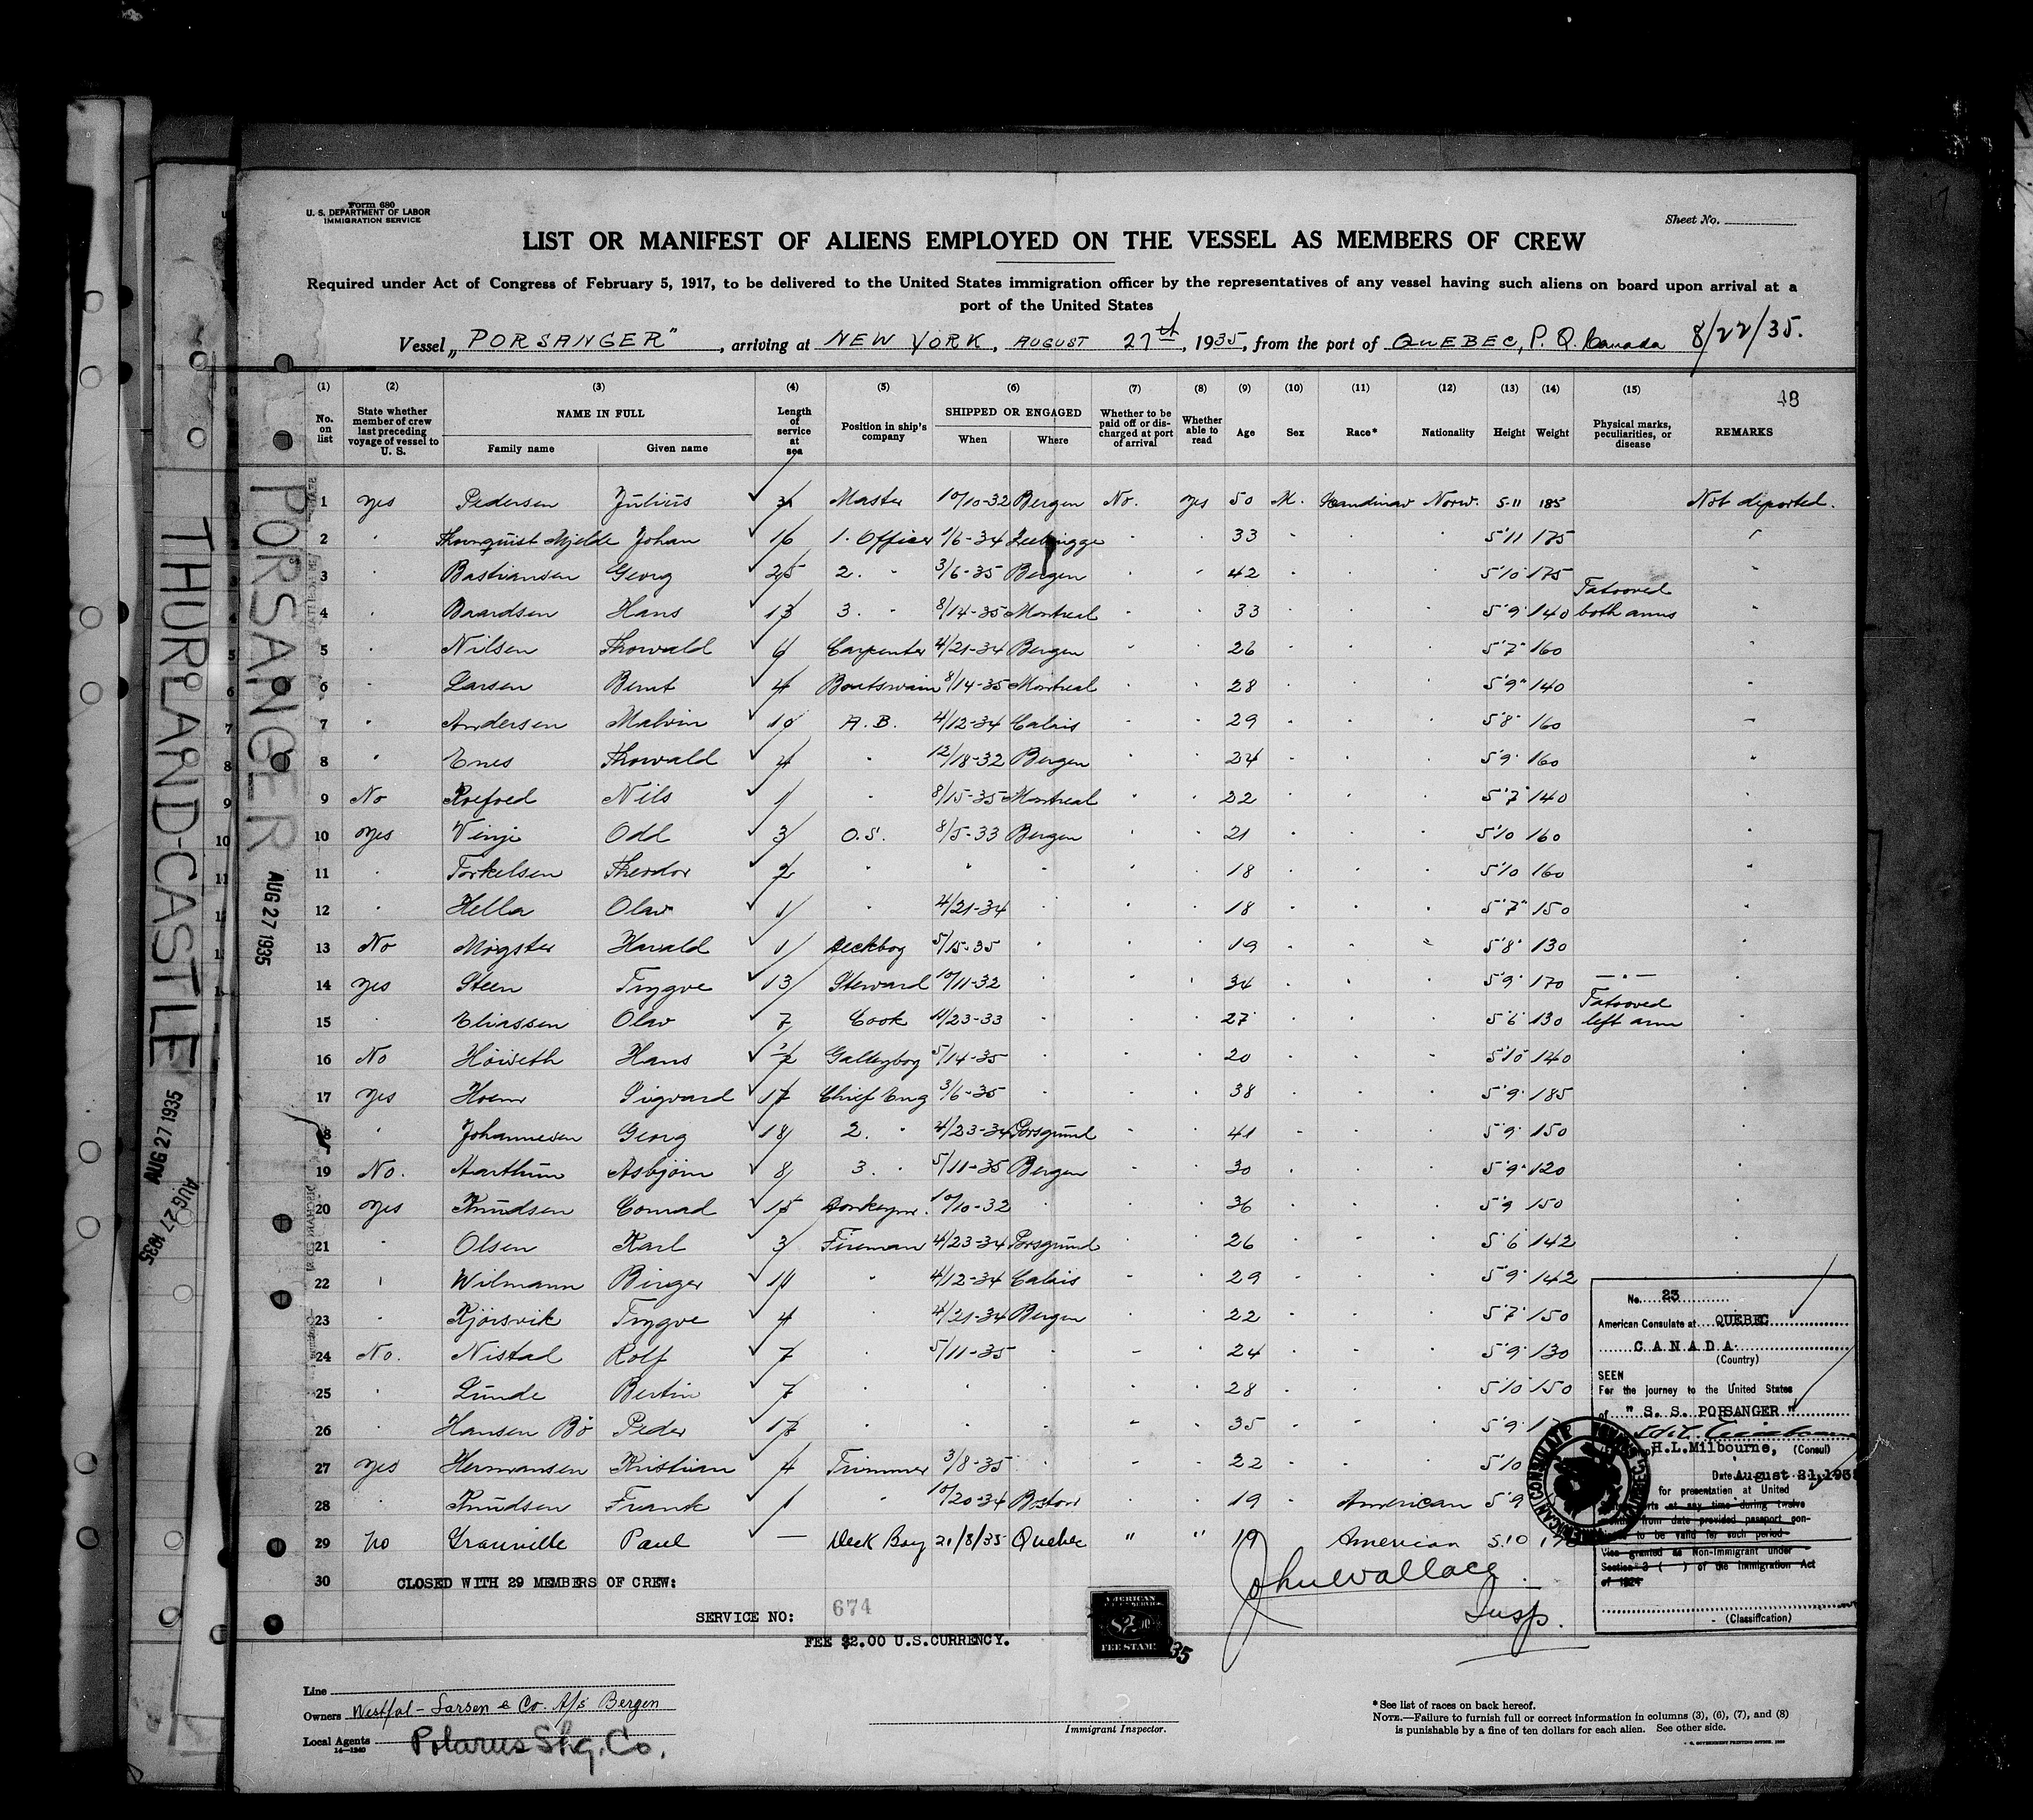 Form 680
U. S. DEPARTMENT OF LABOR
IMMIGRATION SERVICE
Sheet No.
LIST OR MANIFEST OF ALIENS EMPLOYED ON THE VESSEL AS MEMBERS OF CREW
Required under Act of Congress of February 5, 1917, to be delivered to the United States immigration officer by the representatives of any vessel having such aliens on board upon arrival at a
port of the United States
Vessel „PORSANGER", arriving at NEW YORK, AUGUST 27th, 1935, from the port of QUEBEC, P. Q. Canada 8/22/35.
48
(1) (2) (3) (4) (5) (6) (7) (8) (9) (10) (11) (12) (13) (14) (15)
No. on list State whether member of crew last preceding voyage of vessel to U. S. NAME IN FULL Family name Given name Length of service at sea Position in ship's company SHIPPED OR ENGAGED When Where Whether to be paid off or discharged at port of arrival Whether able to read Age Sex Race* Nationality Height Weight Physical marks, peculiarities, or disease REMARKS
1 yes Pedersen Julius Master 10/10-32 Bergen No. yes 50 M. Scandinav Norw. 5-11 185 Not deported.
2 " Thornquist Mjelde Johan 16 1. Officer 1/6-34 Zeebrügge 33 5'11 175 "
3 " Bastiansen Georg 25 2. " 3/6-35 Bergen 42 5'10 175 "
4 " Baardsen Hans 13 3. " 8/14-35 Montreal 33 5'9 140 Tatooved both arms "
5 " Nilsen Thorvald 6 Carpenter 4/21-34 Bergen 26 5'7 160 "
6 " Larsen Bernt 4 Boatswain 8/14-35 Montreal 28 5'9" 140 "
7 " Andersen Malvin 10 A. B. 4/12-34 Calais 29 5'8 160 "
8 " Enes Thorvald 4 " 12/18-32 Bergen 24 5'9 160 "
9 No Roefved Nils 1 " 8/15-35 Montreal 22 5'7 140 "
10 yes Vinje Odd 3 O.S. 8/5-33 Bergen 21 5'10 160 "
11 " Torkelsen Theodor 2 " " " 18 5'10 160 "
12 " Hella Olav 1 " 4/21-34 " 18 5'7" 150 "
13 No Møgster Harald 1 Deckboy 5/15-35 " 19 5'8 130 "
14 yes Steen Trygve 13 Steward 10/11-32 " 34 5'9 170 — " — "
15 " Eliassen Olav 7 Cook 4/23-33 " 27 5'6 130 Tatooved left arm "
16 No Höiseth Hans 1/2 Galleyboy 5/14-35 " 20 5'10 140 "
17 yes Hoem Sigvard 17 Chief Eng 3/6-35 " 38 5'9 185 "
18 " Johannesen Georg 18 2. " 4/23-34 Porsgrund 41 5'9 150 "
19 No. Aarthun Asbjörn 8 3. " 5/11-35 Bergen 30 5'9 120 "
20 yes Knudsen Conrad 15 Donkeym. 10/10-32 " 36 5'9 150 "
21 " Olsen Karl 3 Fireman 4/23-34 Porsgrund 26 5'6 142 "
22 " Wilmann Birger 11 " 4/12-34 Calais 29 5'9 142 "
23 " Kjörsvik Trygve 4 " 4/21-34 Bergen 22 5'7 150
24 No. Nistad Rolf 7 " 5/11-35 " 24 5'9 130
25 " Lunde Bertin 7 " " " 28 5'10 150
26 Hansen Bö Peder 17 " " " 35 5'9
27 yes Hermansen Kristian 4 Trimmer 3/8-35 " 22 5'10
28 " Knudsen Frank 1 " 10/20-34 Boston 19 American 5'9
29 No Granville Paul — Deck Boy 21/8/35 Quebec " " 19 American 5.10
30 CLOSED WITH 29 MEMBERS OF CREW:
SERVICE NO: 674
FEE $2.00 U.S.CURRENCY.
John Wallace
Insp.
AMERICAN
$2.00
FEE STAMP
35
No. 23
American Consulate at QUEBEC
CANADA
(Country)
SEEN
For the journey to the United States
of " S. S. PORSANGER "
H.L.Milbourne, (Consul)
Date August 21, 193
for presentation at United
at any time during twelve
from date provided passport con-
to be valid for such period
Visa granted as Non-Immigrant under
Section 3 ( ) of the Immigration Act
of 1924
(Classification)
AMERICAN CONSULATE
QUEBEC, CANADA
Line
Owners Westfal-Larsen & Co. A/s Bergen
Local Agents Polarus Shg. Co.
14—1240
Immigrant Inspector.
*See list of races on back hereof.
NOTE.—Failure to furnish full or correct information in columns (3), (6), (7), and (8)
is punishable by a fine of ten dollars for each alien. See other side.
PORSANGER
AUG 27 1935
THURLAND-CASTLE
AUG 27 1935
AUG 27 1935